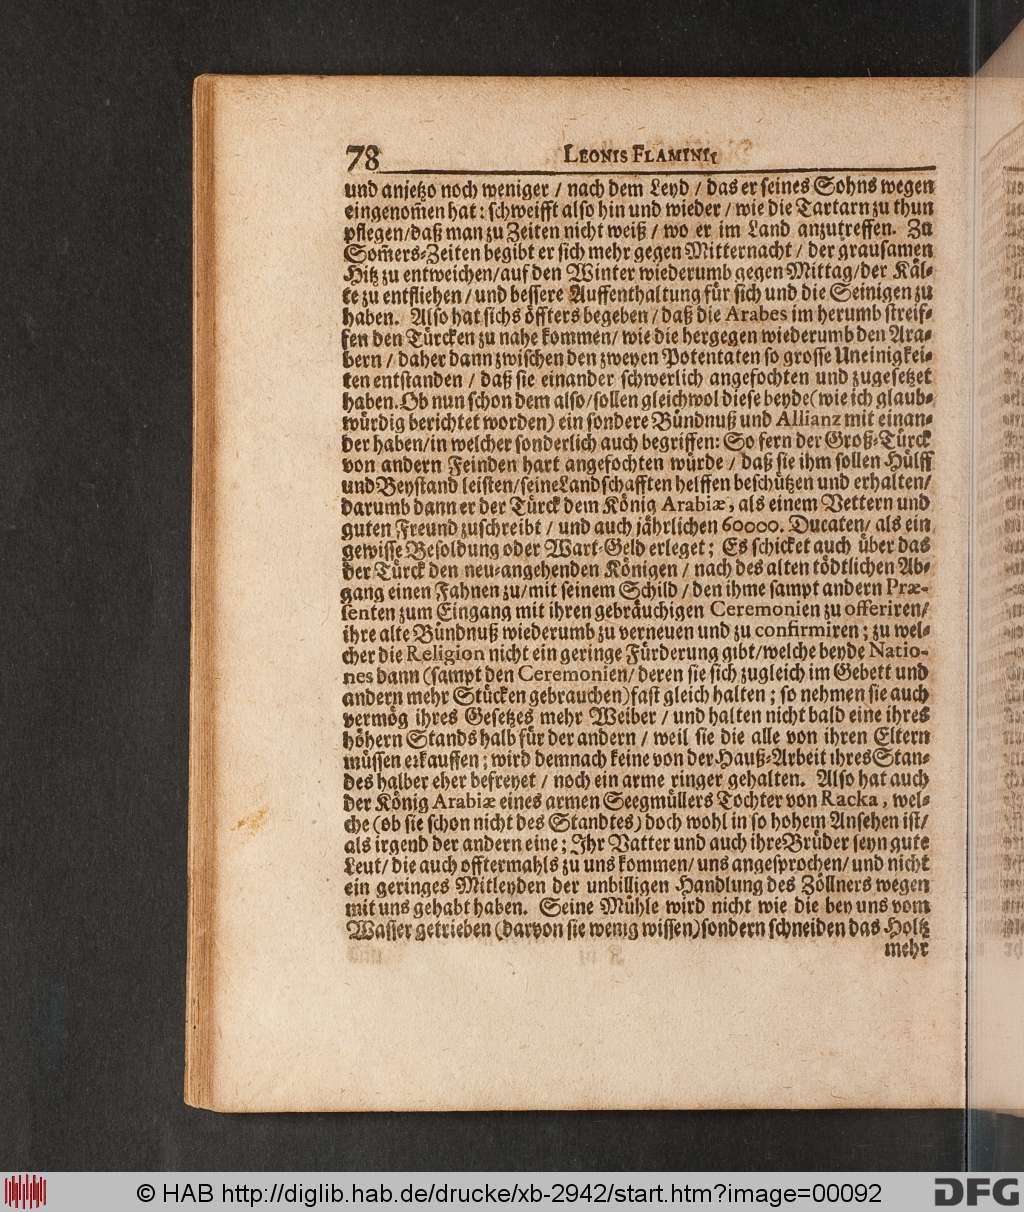 78 LEONIS FLAMINII
und anjetzo noch weniger / nach dem Leyd / das er seines Sohns wegen
eingenom̄en hat: schweifft also hin und wieder / wie die Tartarn zu thun
pflegen/daß man zu Zeiten nicht weiß / wo er im Land anzutreffen. Zu
Som̄ers-Zeiten begibt er sich mehr gegen Mitternacht / der grausamen
Hitz zu entweichen/auf den Winter wiederumb gegen Mittag/der Käl-
te zu entfliehen / und bessere Auffenthaltung für sich und die Seinigen zu
haben. Also hat sichs öffters begeben / daß die Arabes im herumb streif-
fen den Türcken zu nahe kommen/ wie die hergegen wiederumb den Ara-
bern / daher dann zwischen den zweyen Potentaten so grosse Uneinigkei-
ten entstanden / daß sie einander schwerlich angefochten und zugesetzet
haben. Ob nun schon dem also/sollen gleichwol diese beyde (wie ich glaub-
würdig berichtet worden) ein sondere Bündnuß und Allianz mit einan-
der haben/in welcher sonderlich auch begriffen: So fern der Groß-Türck
von andern Feinden hart angefochten würde / daß sie ihm sollen Hülff
und Beystand leisten/seine Landschafften helffen beschützen und erhalten/
darumb dann er der Türck dem König Arabiæ, als einem Vettern und
guten Freund zuschreibt / und auch jährlichen 60000. Ducaten/ als ein
gewisse Besoldung oder Wart-Geld erleget; Es schicket auch über das
der Türck den neu-angehenden Königen / nach des alten tödtlichen Ab-
gang einen Fahnen zu/mit seinem Schild / den ihme sampt andern Præ-
senten zum Eingang mit ihren gebräuchigen Ceremonien zu offeriren/
ihre alte Bündnuß wiederumb zu verneuen und zu confirmiren; zu wel-
cher die Religion nicht ein geringe Fürderung gibt/welche beyde Natio-
nes dann (sampt den Ceremonien/ deren sie sich zugleich im Gebett und
andern mehr Stücken gebrauchen) fast gleich halten; so nehmen sie auch
vermög ihres Gesetzes mehr Weiber / und halten nicht bald eine ihres
höhern Stands halb für der andern / weil sie die alle von ihren Eltern
müssen erkauffen; wird demnach keine von der Hauß-Arbeit ihres Stan-
des halber eher befreyet / noch ein arme ringer gehalten. Also hat auch
der König Arabiæ eines armen Seegmüllers Tochter von Racka, wel-
che (ob sie schon nicht des Standtes) doch wohl in so hohem Ansehen ist/
als irgend der andern eine; Ihr Vatter und auch ihre Brüder seyn gute
Leut/ die auch offtermahls zu uns kommen/ uns angesprochen/ und nicht
ein geringes Mitleyden der unbilligen Handlung des Zöllners wegen
mit uns gehabt haben. Seine Mühle wird nicht wie die bey uns vom
Wasser getrieben (darvon sie wenig wissen) sondern schneiden das Holtz
mehr
© HAB http://diglib.hab.de/drucke/xb-2942/start.htm?image=00092
DFG